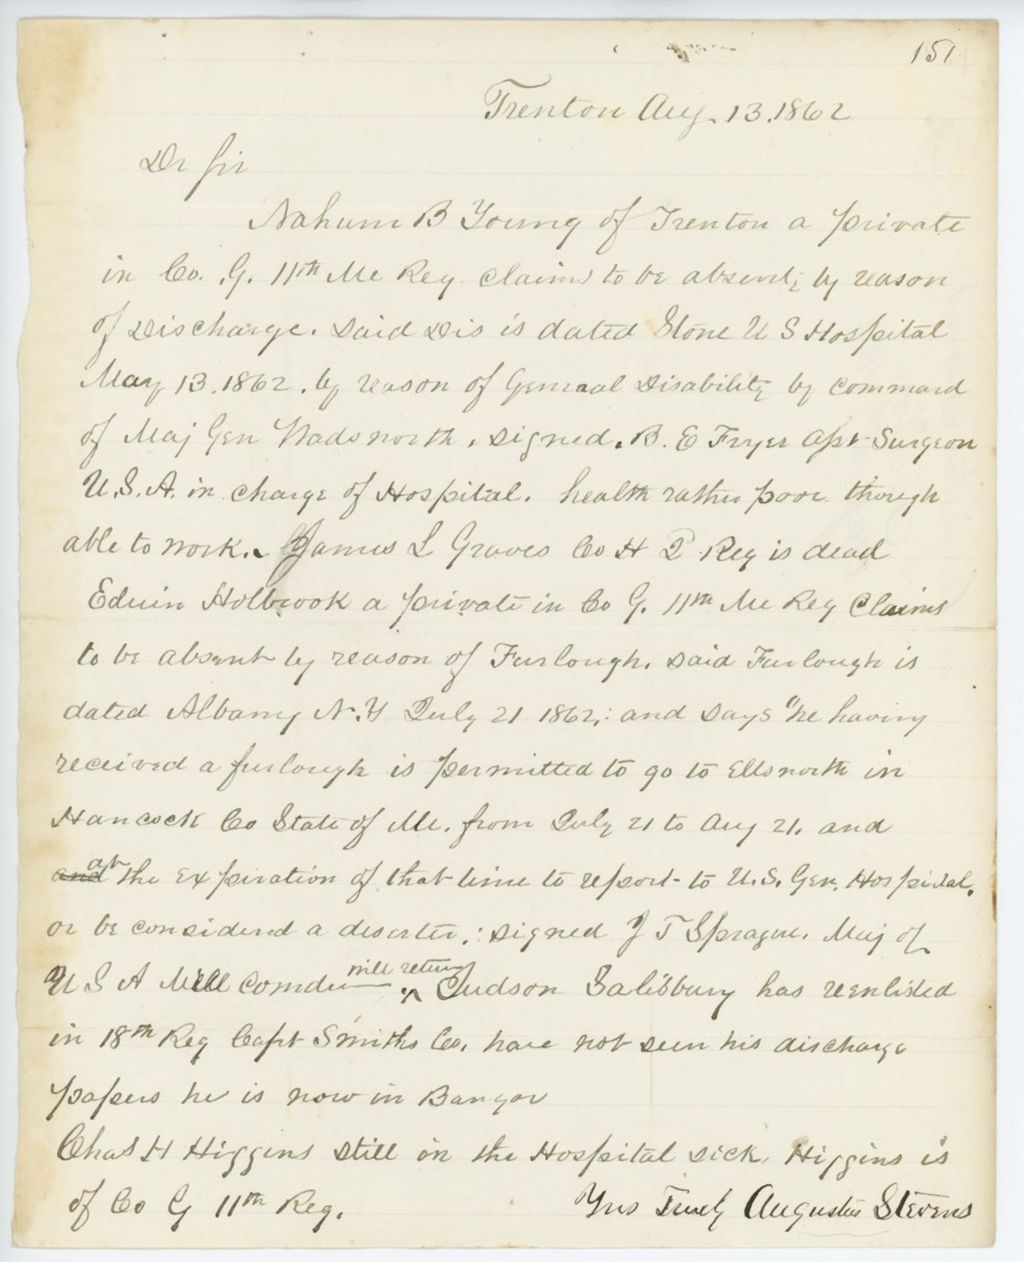 151
Trenton Aug. 13. 1862
Dr Sir
Nahum B Young of Trenton a private
in Co. G. 11th Me Reg claims to be absent, by reason
of Discharge. Said Dis is dated Stone U S Hospital
May 13. 1862. by reason of General Disability by command
of Maj Gen Wadsworth, signed. B. E Fryer Asst Surgeon
U.S.A. in charge of Hospital. health rather poor though
able to work. James L Graves Co H Reg is dead
Edwin Holbrook a private in Co G. 11th Me Reg Claims
to be absent by reason of Furlough. Said Furlough is
dated Albany N.Y July 21 1862,: and says "he having
received a furlough is permitted to go to Ellsworth in
Hancock Co State of Me. from July 21 to Aug 21. and
and at the expiration of that time to report to U.S. Gen. Hospital.
or be considerd a deserter,: signed J T Sprague. Maj of
U S A will return Judson Salisbury has reenlisted
in 18th Reg Capt Smiths Co. have not seen his discharge
papers he is now in Bangor
Chas H Higgins still in the Hospital sick. Higgins is
of Co G 11th Reg. Yrs Truly Augustus Stevens